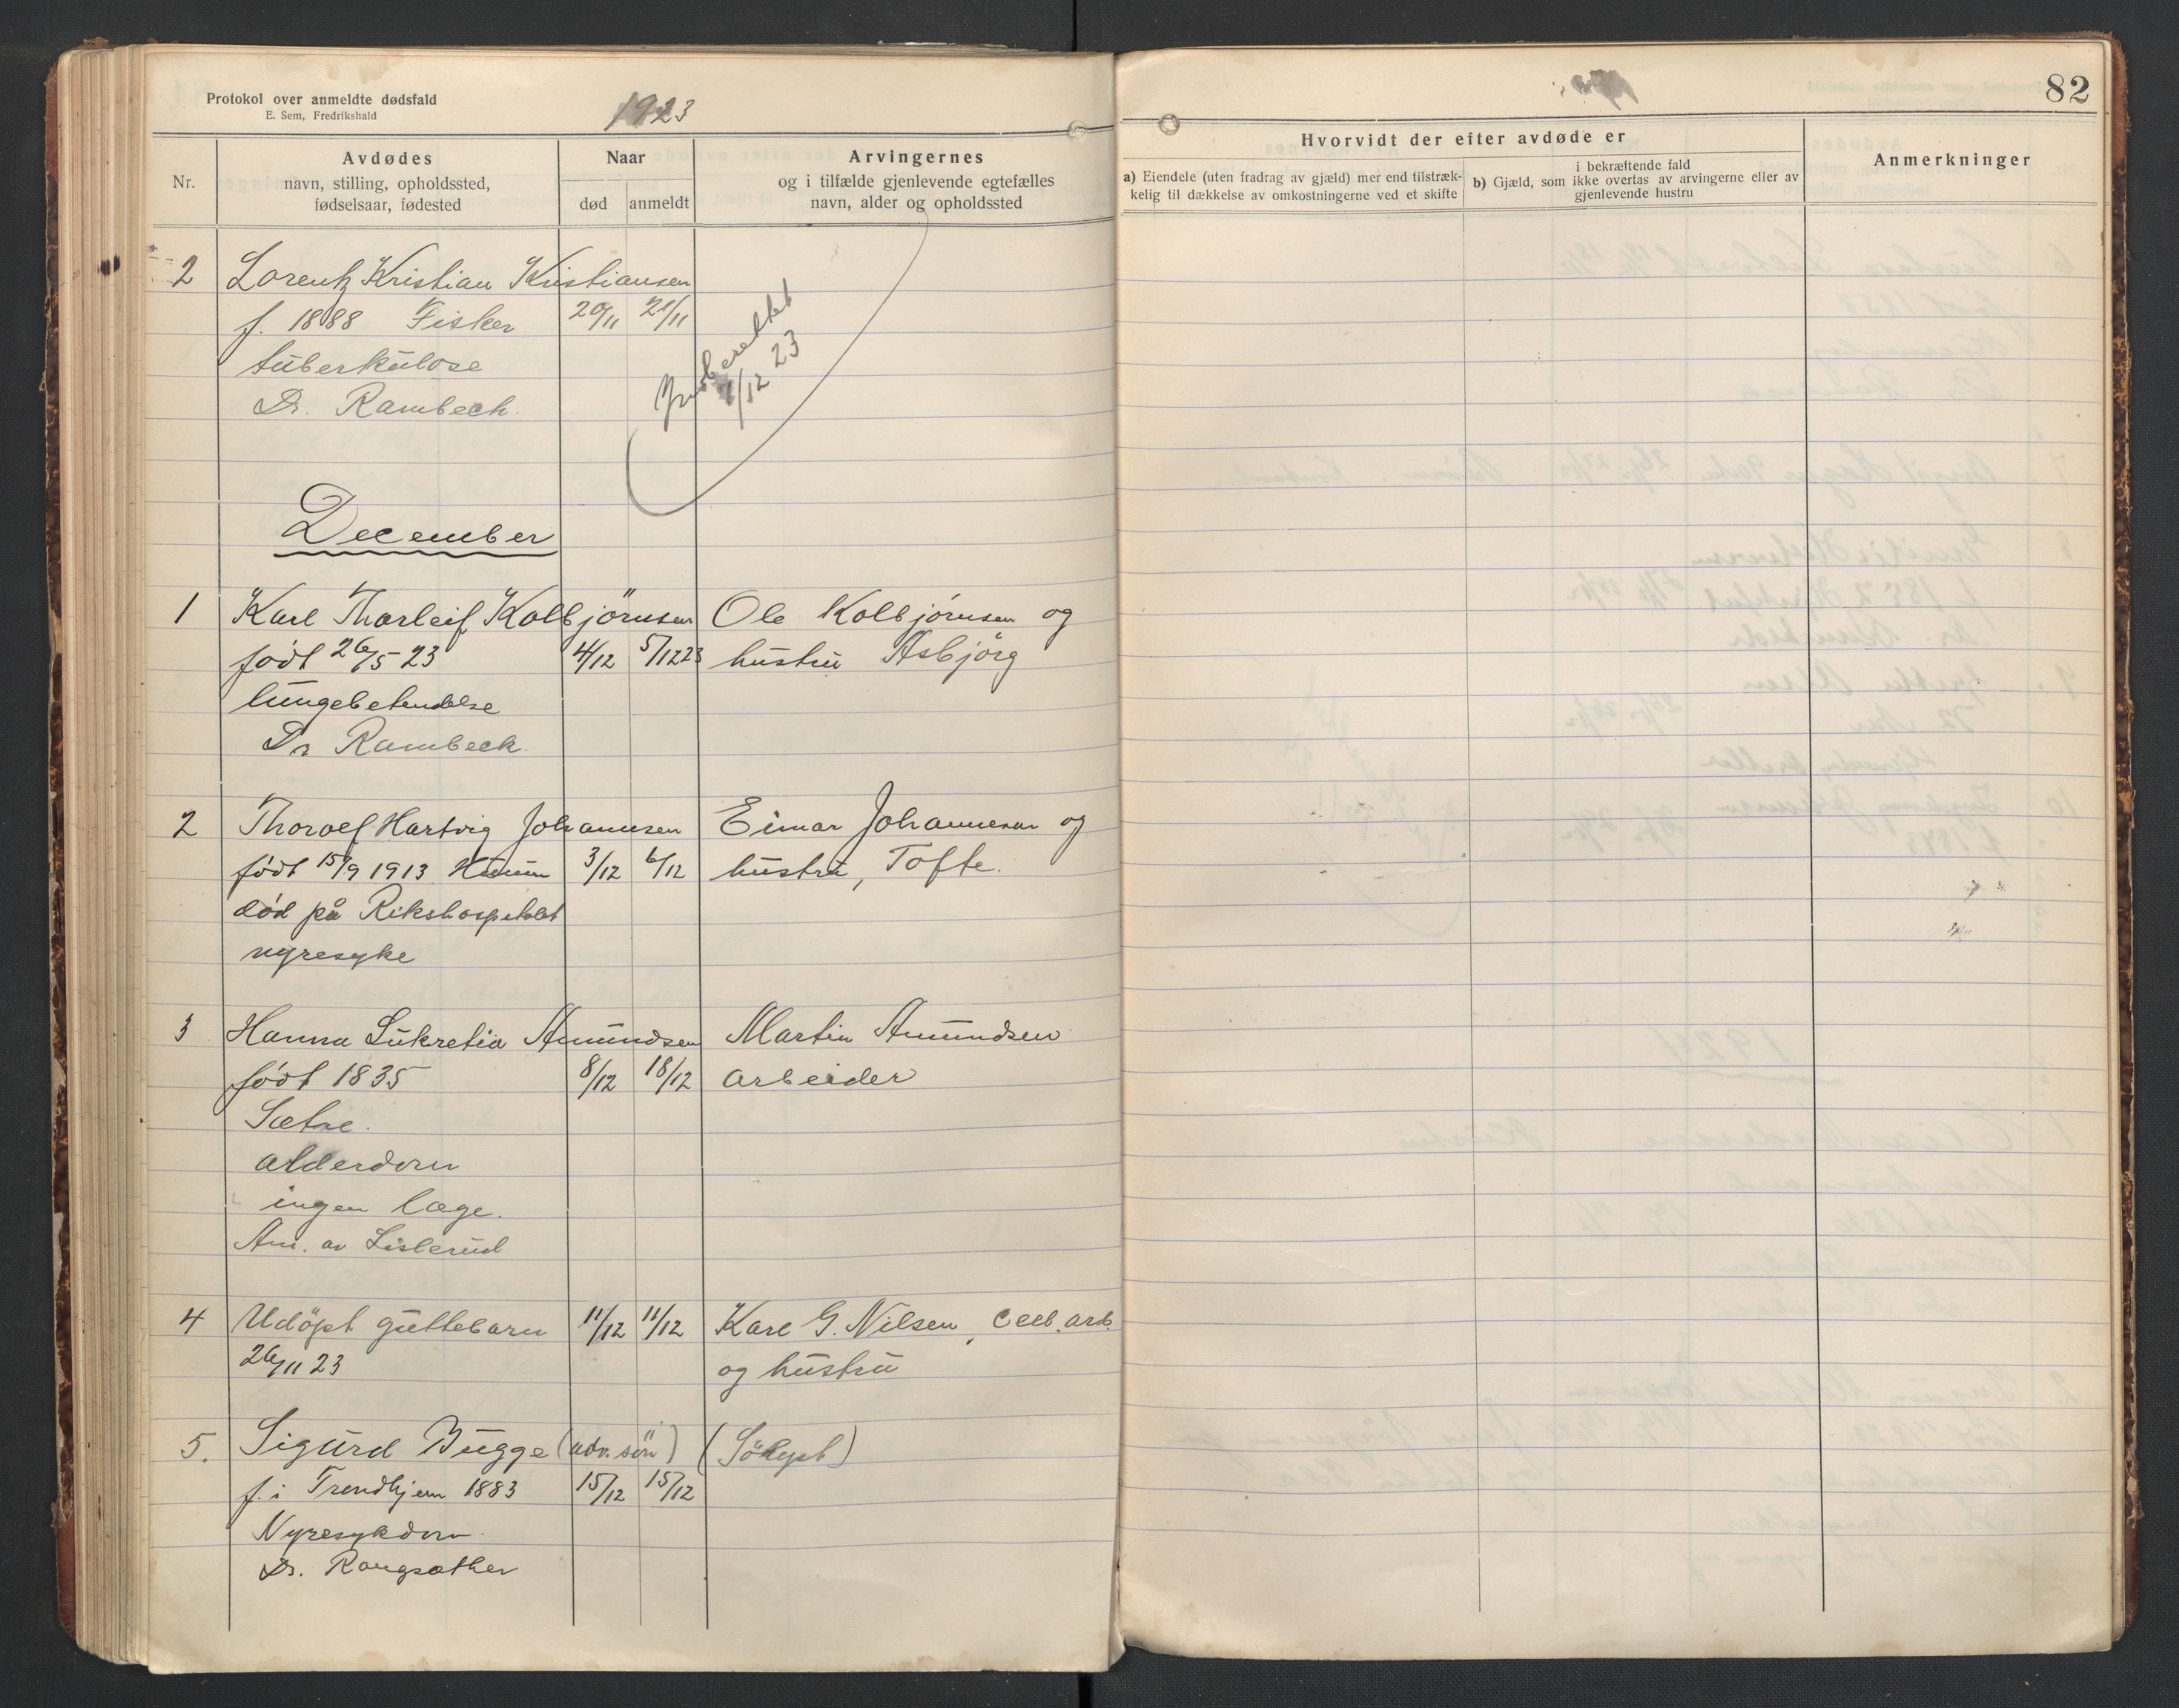 Protokol over anmeldte dødsfald
E. Sem, Fredrikshald
1923
Nr.
Avdødes
navn, stilling, opholdssted,
fødselsaar, fødested
Naar
død
anmeldt
Arvingernes
og i tilfælde gjenlevende egtefælles
navn, alder og opholdssted
2 Lorentz Kristian Kristiansen
f. 1888 Fisker 20/11 21/11
tuberkulose
Dr. Rambech.
Innberettet
7/12 23
December
1 Karl Thorleif Kolbjörnsen Ole Kolbjörnsen og
født 26/5 23 4/12 5/12 23 hustru Asbjörg
lungebetendelse
Dr Rambeck.
2 Thorolf Hartvig Johannsen Einar Johannesen og
født 15/9 1913 Hurum 3/12 6/12 hustru, Tofte.
død på Rikshospitalet
nyresyke
3 Hanna Lukretia Amundsen Martin Amundsen
født 1835 8/12 18/12 arbeider
Sætre.
alderdom
ingen læge.
Am. av Lislerud
4 Udöpt guttebarn 11/12 11/12 Karl G. Nilsen, cell. arb.
26/11 23 og hustru
5. Sigurd Bugge (adv. sön)
f. i Trondhjem 1883 15/12 15/12
Nyresykdom
Dr.
82
Hvorvidt der efter avdøde er
a) Eiendele (uten fradrag av gjæld) mer end tilstræk-
kelig til dækkelse av omkostningerne ved et skifte
i bekræftende fald
b) Gjæld, som ikke overtas av arvingerne eller av
gjenlevende hustru
Anmerkninger